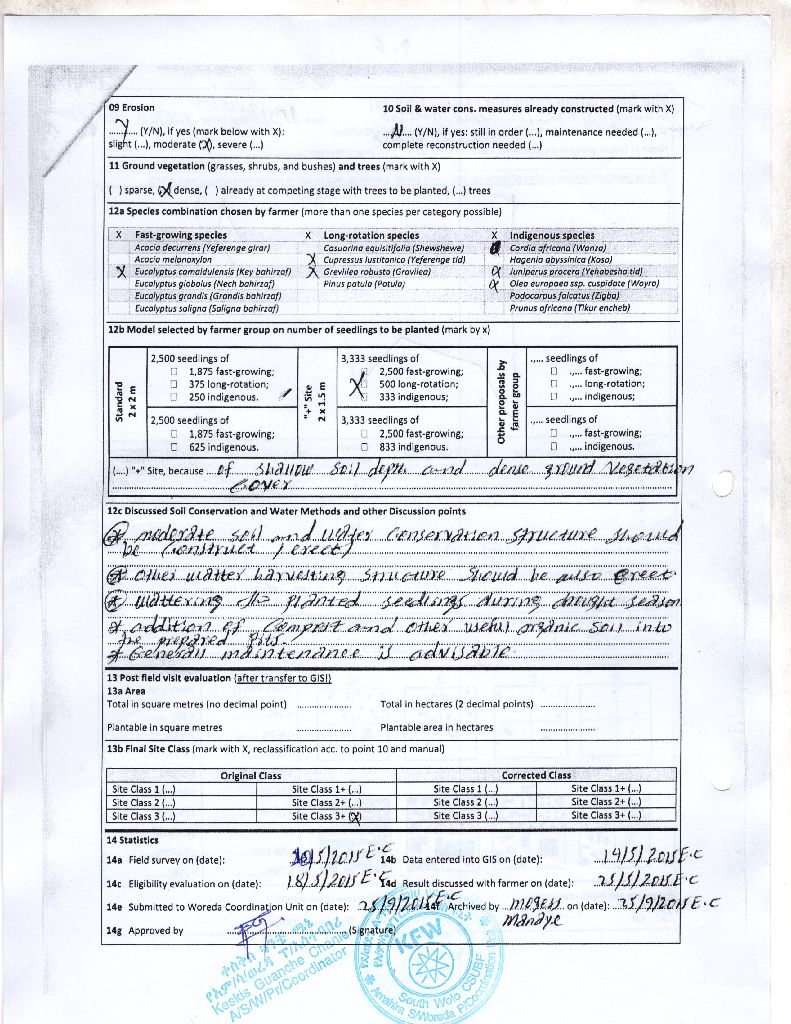 09 Erosion
10 Soil & water cons. measures already constructed (mark with X)
...Y.... (Y/N), if yes (mark below with X):
slight (...), moderate (X), severe (...)
...N.... (Y/N), if yes: still in order (...), maintenance needed (...),
complete reconstruction needed (...)
11 Ground vegetation (grasses, shrubs, and bushes) and trees (mark with X)
( ) sparse, (X) dense, ( ) already at competing stage with trees to be planted, (...) trees
12a Species combination chosen by farmer (more than one species per category possible)
X Fast-growing species X Long-rotation species X Indigenous species
Acacia decurrens (Yeferenge girar) Casuarina equisitifolia (Shewshewe) Cordia africana (Wanza)
Acacia melanoxylon X Cupressus lustitanica (Yeferenge tid) Hagenia abyssinica (Koso)
X Eucalyptus camaldulensis (Key bahirzaf) X Grevilea robusta (Gravilea) X Juniperus procera (Yehabesha tid)
Eucalyptus globolus (Nech bahirzaf) Pinus patula (Patula) X Olea europaea ssp. cuspidate (Wayra)
Eucalyptus grandis (Grandis bahirzaf) Podocarpus falcatus (Zigba)
Eucalyptus saligna (Saligna bahirzaf) Prunus africana (Tikur encheb)
12b Model selected by farmer group on number of seedlings to be planted (mark by x)
Standard
2 x 2 m
2,500 seedlings of
☐ 1,875 fast-growing;
☐ 375 long-rotation;
☐ 250 indigenous.
2,500 seedlings of
☐ 1,875 fast-growing;
☐ 625 indigenous.
"+" Site
2 x 1.5 m
3,333 seedlings of
☐ 2,500 fast-growing;
X 500 long-rotation;
☐ 333 indigenous;
3,333 seedlings of
☐ 2,500 fast-growing;
☐ 833 indigenous.
Other proposals by
farmer group
.,... seedlings of
☐ .,... fast-growing;
☐ .,... long-rotation;
☐ .,... indigenous;
.,... seedlings of
☐ .,... fast-growing;
☐ .,... indigenous.
(....) "+" Site, because ... of shallow soil depth and dense ground vegetation
cover
12c Discussed Soil Conservation and Water Methods and other Discussion points
* moderate soil and water conservation structure should
be construct (erect)
* other watter harvesting structure should be also erect
* wattering the planted seedlings during drought season
* addition of compost and other useful organic soil into
the prepared pits.
* Generall maintenance is advisable
13 Post field visit evaluation (after transfer to GIS!)
13a Area
Total in square metres (no decimal point) .................... Total in hectares (2 decimal points) ....................
Plantable in square metres .................... Plantable area in hectares ....................
13b Final Site Class (mark with X, reclassification acc. to point 10 and manual)
Original Class Corrected Class
Site Class 1 (...) Site Class 1+ (...) Site Class 1 (...) Site Class 1+ (...)
Site Class 2 (...) Site Class 2+ (...) Site Class 2 (...) Site Class 2+ (...)
Site Class 3 (...) Site Class 3+ (X) Site Class 3 (...) Site Class 3+ (...)
14 Statistics
14a Field survey on (date): /5/2015 E.C 14b Data entered into GIS on (date): 19/5/2015 E.C
14c Eligibility evaluation on (date): 18/5/2015 E.C 14d Result discussed with farmer on (date): 25/5/2015 E.C
14e Submitted to Woreda Coordination Unit on (date): 25/9/2015 E.C 14f Archived by on (date): 25/9/2015 E.C
14g Approved by .................... (Signature)
Keskis Guanche Chanie
A/S/W/P/Coordinator
KFW
South Wolo CSUBP
Amahira S/Woreda P/Coordination